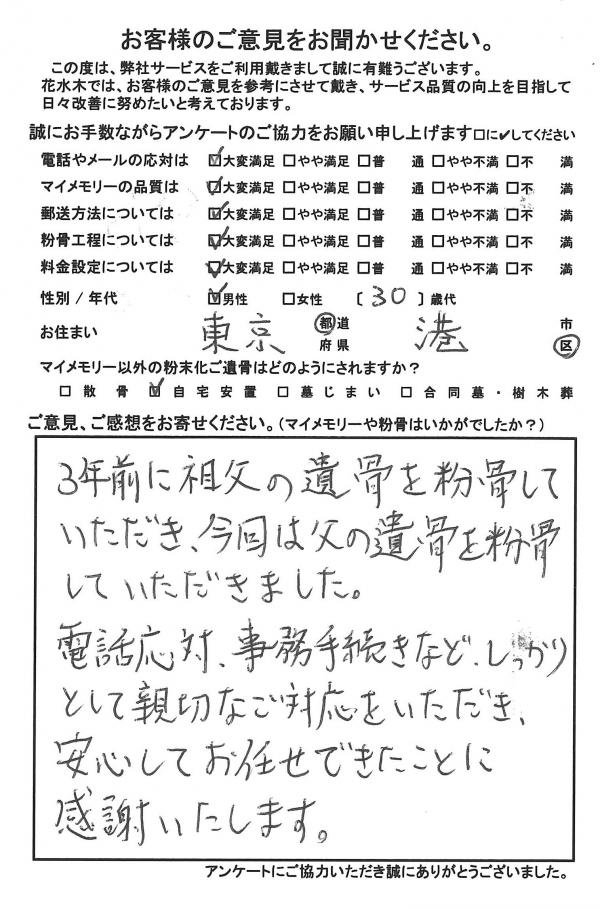 お客様のご意見をお聞かせください。
この度は、弊社サービスをご利用戴きまして誠に有難うございます。
花水木では、お客様のご意見を参考にさせて戴き、サービス品質の向上を目指して
日々改善に努めたいと考えております。
誠にお手数ながらアンケートのご協力をお願い申し上げます□に✓してください
電話やメールの応対は ☑大変満足 □やや満足 □普 通 □やや不満 □不 満
マイメモリーの品質は ☑大変満足 □やや満足 □普 通 □やや不満 □不 満
郵送方法については ☑大変満足 □やや満足 □普 通 □やや不満 □不 満
粉骨工程については ☑大変満足 □やや満足 □普 通 □やや不満 □不 満
料金設定については ☑大変満足 □やや満足 □普 通 □やや不満 □不 満
性別 / 年代 ☑男性 □女性 〔 30 〕歳代
お住まい 東京 都道府県 港 市区
マイメモリー以外の粉末化ご遺骨はどのようにされますか?
□ 散 骨 ☑ 自宅安置 □ 墓じまい □ 合同墓・樹木葬
ご意見、ご感想をお寄せください。(マイメモリーや粉骨はいかがでしたか?)
3年前に祖父の遺骨を粉骨して
いただき、今回は父の遺骨を粉骨
していただきました。
電話応対、事務手続きなど、しっかり
として親切なご対応をいただき、
安心してお任せできたことに
感謝いたします。
アンケートにご協力いただき誠にありがとうございました。